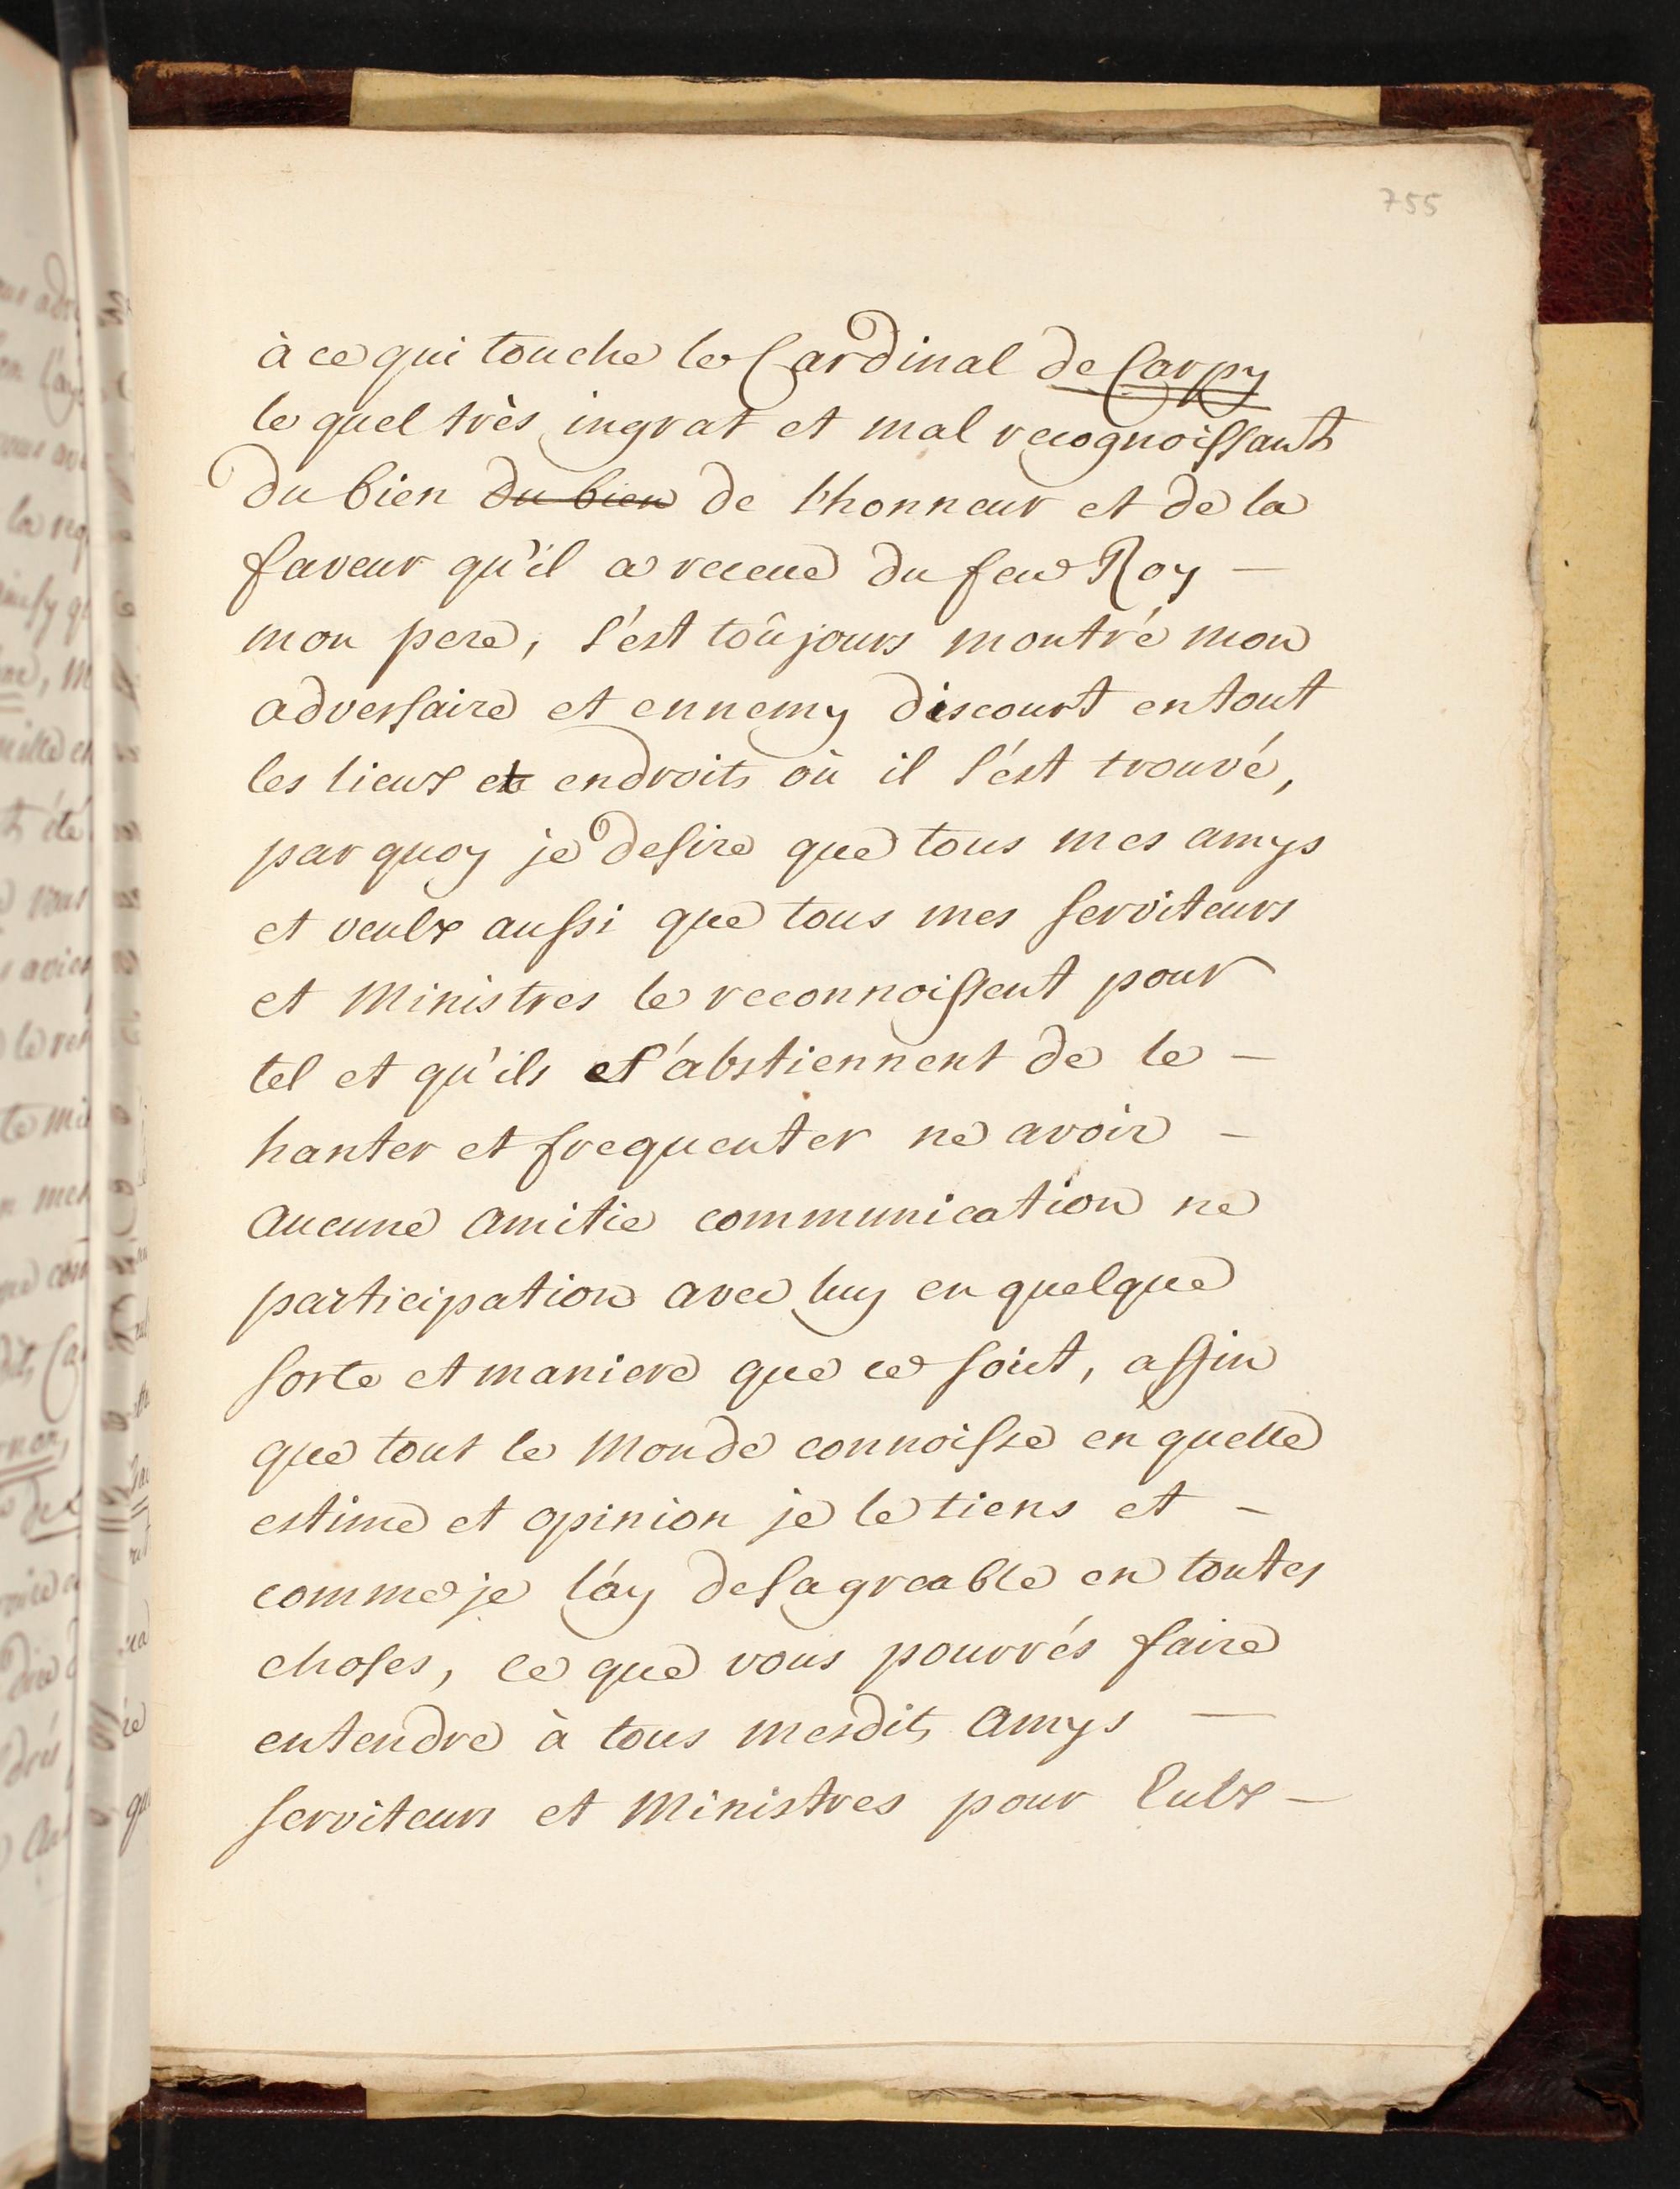 755
à ce qui touche le Cardinal de Carpy
le quel très ingrat et mal recognoissant
du bien du bien de l'honneur et de la
faveur qu'il a receue du feu Roy —
mon pere, s'est toûjours montré mon
adversaire et ennemy discourt en tout
les lieux et endroits où il s'est trouvé,
par quoy je desire que tous mes amys
et veulx aussi que tous mes serviteurs
et Ministres le reconnoissent pour
tel et qu'ils s'abstiennent de le —
hanter et frequenter ne avoir —
aucune amitie communication ne
participation avec luy en quelque
sorte et maniere que ce soit, affin
que tout le Monde connoisse en quelle
estime et opinion je le tiens et —
comme je l'ay desagreable en toutes
choses, ce que vous pourrés faire
entendre à tous mesdits amys —
serviteurs et Ministres pour Eulx —